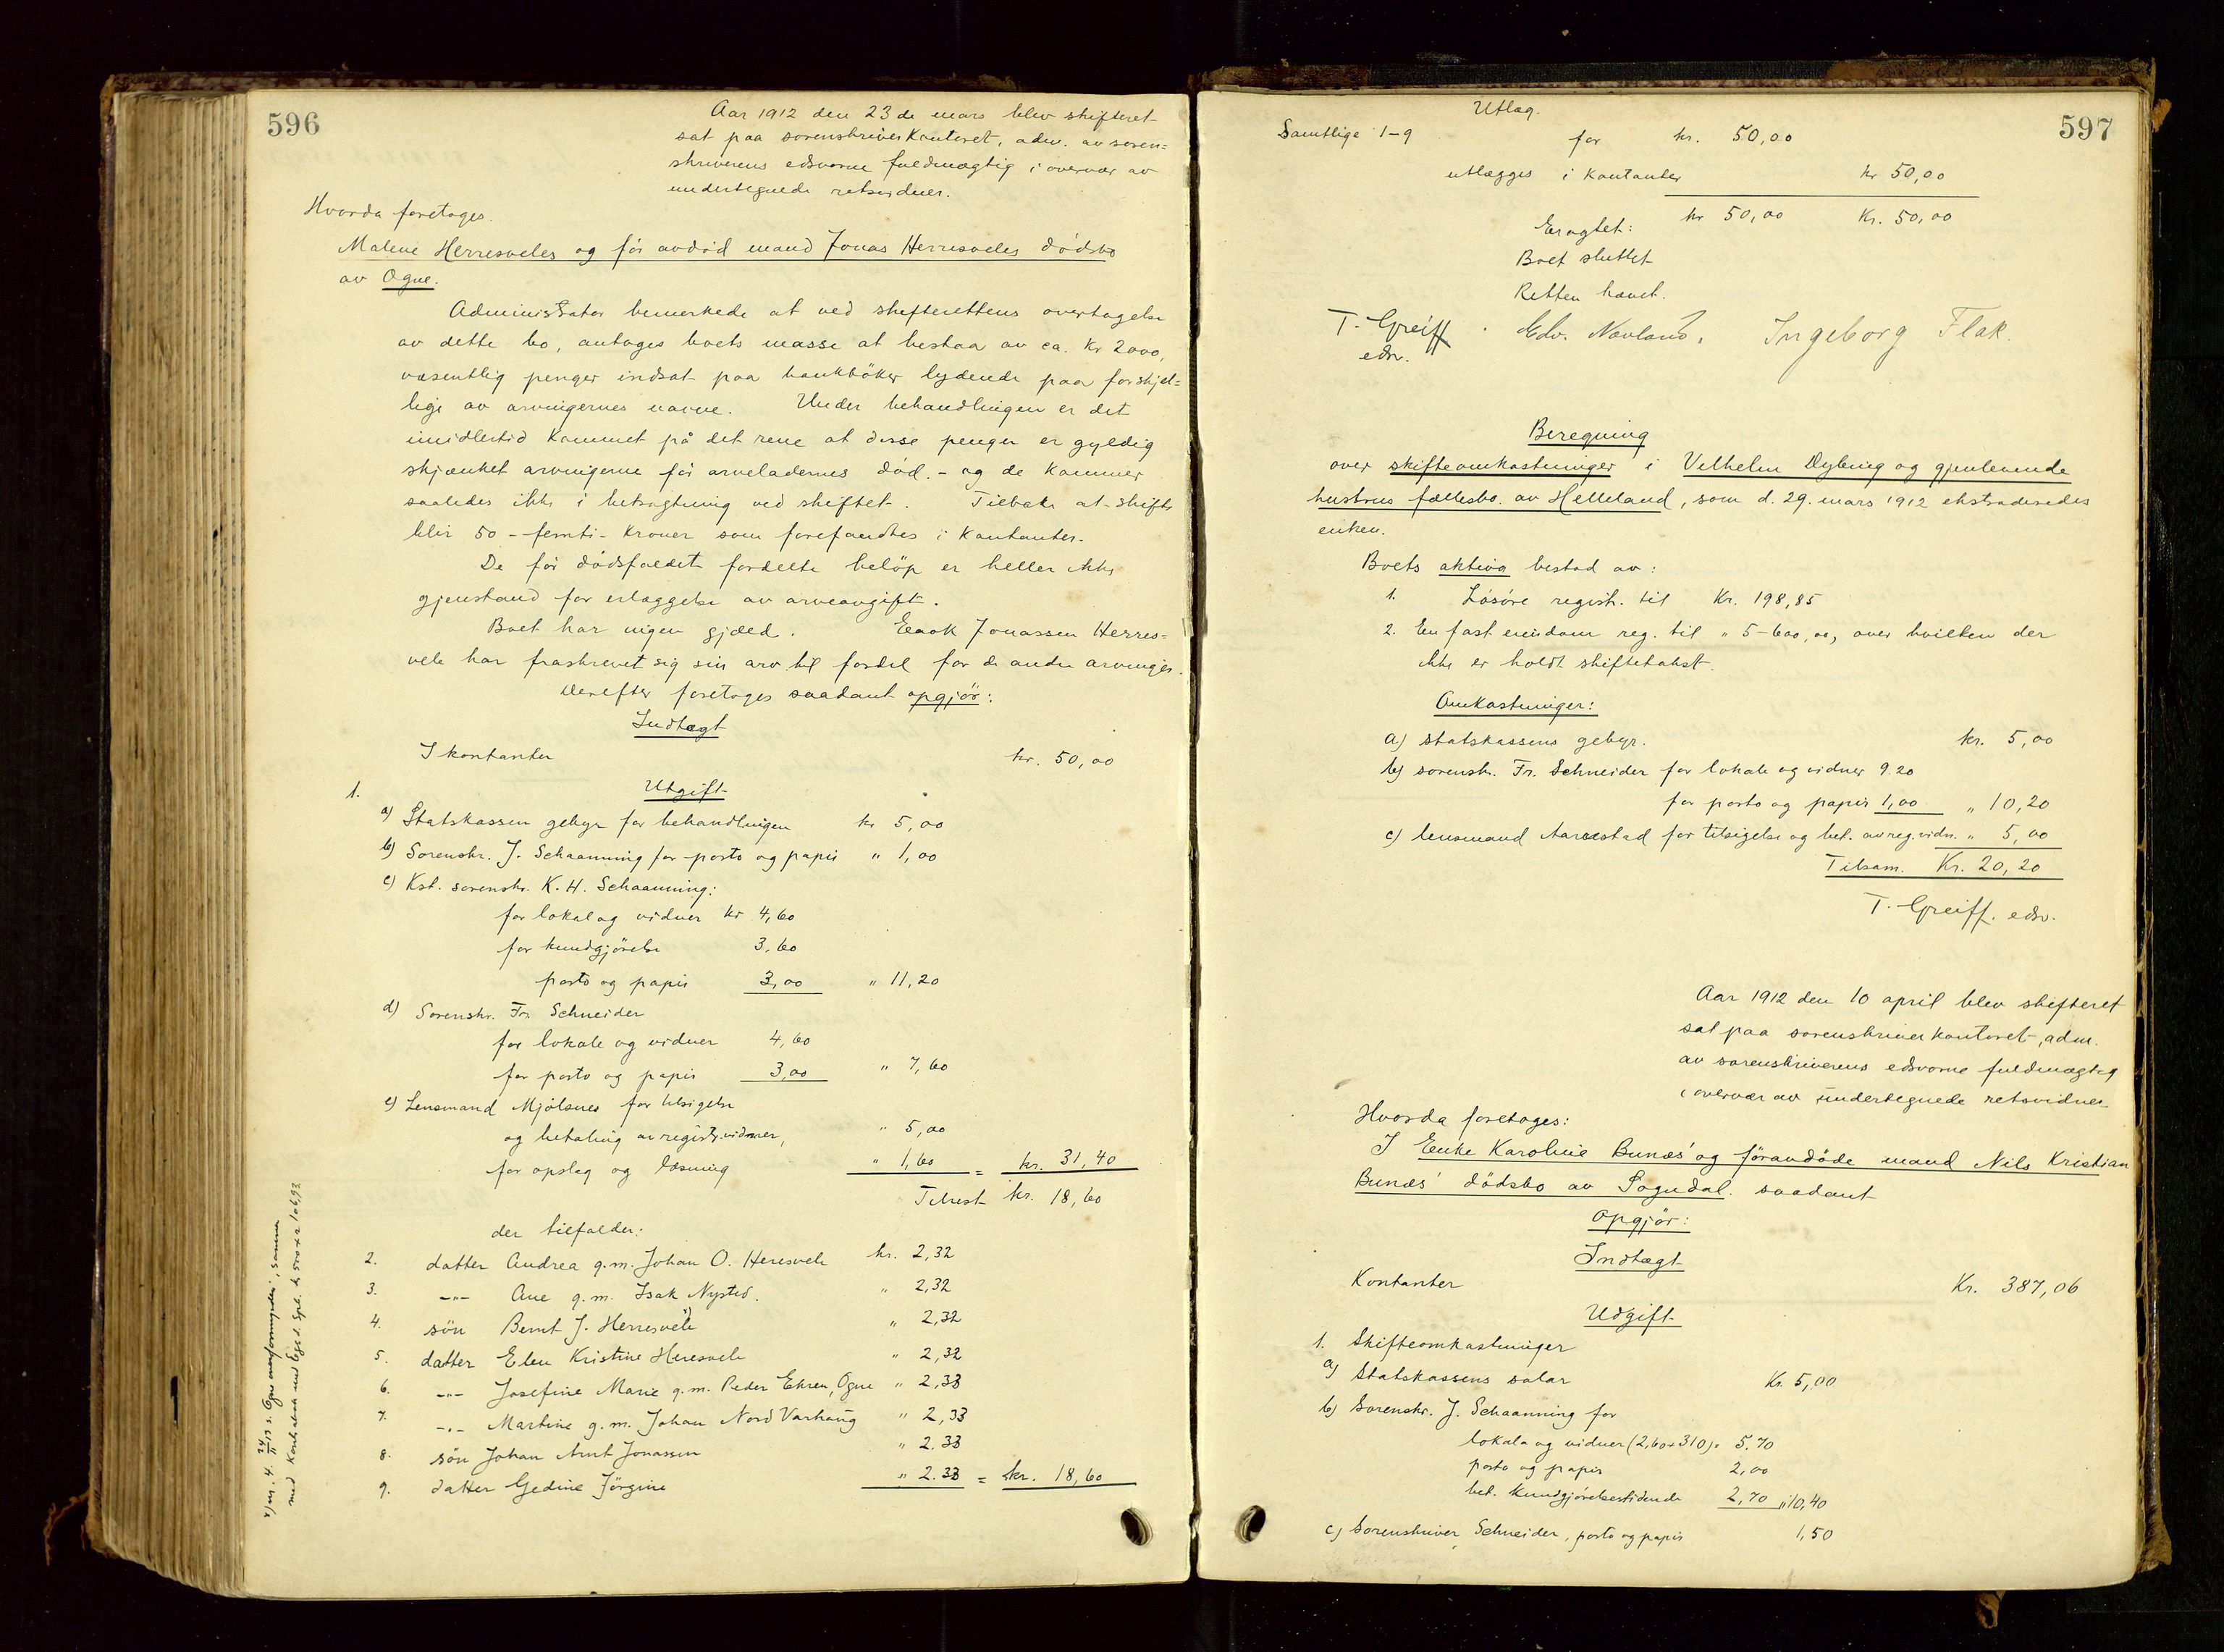 596
Aar 1912 den 23de mars blev skifteret
sat paa sorenskriverkontoret, adm. av soren=
skriverens edsvorne fuldmægtig i overvær av
undertegnede retsvidner.
Hvorda foretoges.
Malene Herresveles og før avdød mand Jonas Herresveles dødsbo
av Ogne.
Administrator bemerkede at ved skifterettens overtagelse
av dette bo, antoges boets masse at bestaa av ca. Kr 2000,
væsentlig penger indsat paa bankbøker lydende paa forskjel=
lige av arvingernes navne. Under behandlingen er det
imidlertid kommet på det rene at disse penger er gyldig
skjænket arvingerne før arveladernes død. - og de kommer
saaledes ikke i betragtning ved skiftet. Tilbake at skifte
blir 50 - femti - kroner som forefandtes i kontanter.
De før dødsfaldet fordelte beløp er heller ikke
gjenstand for erlæggelse av arveavgift.
Boet har ingen gjæld. Enok Jonassen Herres=
vele har fraskrevet sig sin arv til fordel for de andre arvinger.
Derefter foretoges saadant opgjør:
Indtægt
I kontanter kr. 50,00
1. Utgift
a) Statskassen gebyr for behandlingen kr 5,00
b) Sorenskr. J. Schaanning for porto og papir " 1,00
c) Kst. sorenskr. K. H. Schaanning:
for lokal og vidner kr 4,60
for kundgjørelse 3,60
porto og papir 3,00 " 11,20
d) Sorenskr. Fr. Schneider
for lokale og vidner 4,60
for porto og papir 3,00 " 7,60
e) Lensmand Mjølsnes for tilsigelse
og betaling av registr.vidner, " 5,00
for opslag og læsning " 1,60 = kr. 31,40
Tilrest kr. 18,60
der tilfalder:
2. datter Andrea g.m. Johan O. Heresvele kr. 2,32
3. -"- Ane g.m. Isak Nysted. " 2,32
4. søn Bernt J. Herresvele x) " 2,32
5. datter Elen Kristine Heresvele " 2,32
6. -"- Josefine Marie g.m. Peder Ehren, Ogne " 2,33
7. -"- Martine g.m. Johan Nord Varhaug " 2,33
8. søn Johan Arnt Jonassen " 2.33
9. datter Gedine Jörgine " 2.33 = kr. 18,60
597
Utlæg.
Samtlige 1-9 for kr. 50,00
utlægges i kontanter kr 50,00
kr 50,00 Kr. 50,00
Eragtet:
Boet sluttet
Retten hævet.
T. Greiff
edsv.
Edv. Novland. Ingeborg Flak.
Beregning
over skifteomkostninger i Vilhelm Dybing og gjenlevende
hustrus fællesbo av Helleland, som d. 29. mars 1912 ekstraderedes
enken.
Boets aktiva bestod av:
1. Løsøre registr. til Kr. 198,85
2. En fast eiendom reg. til " 5-600,00, over hvilken der
ikke er holdt skiftetakst.
Omkostninger:
a) statskassens gebyr. kr. 5,00
b) sorenskr. Fr. Schneider for lokale og vidner 9.20
for porto og papir 1,00 " 10,20
c) lensmand Aarrestad for tilsigelse og bet. av reg.vidn. " 5,00
Tilsam. Kr. 20,20
T. Greiff. edsv.
Aar 1912 den 10 april blev skifteret
sat paa sorenskriverkontoret, adm.
av sorenskriverens edsvorne fuldmægtig
i overvær av undertegnede retsvidner
Hvorda foretoges:
I Enke Karoline Bunæs' og føravdøde mand Nils Kristian
Bunæs' dödsbo av Sogndal. saadant
Opgjör:
Indtægt
Kontanter Kr. 387,06
Udgift
1. Skifteomkostninger
a) Statskassens salær Kr. 5,00
b) Sorenskr. J. Schaanning for
lokale og vidner (2,60+310) = 5.70
porto og papir 2,00
bet. kundgjörelsestidende 2,70 " 10,40
c) Sorenskriver Schneider, porto og papir 1,50